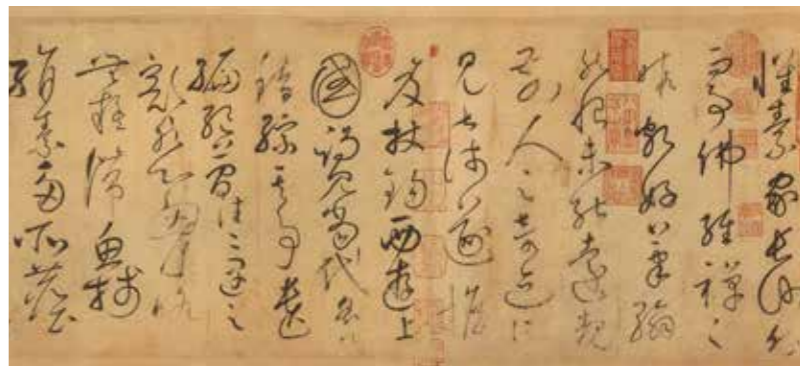 懷素家長沙幼而
事佛經禪之
暇頗好筆翰
然恨未能遠覩
前人之奇迹所
見甚淺遂擔
笈杖錫西遊上
國謁見當代名公
錯綜其事遺
編絕簡往往遇之
豁然心胸略
無疑滯魚牋
絹素多所塵